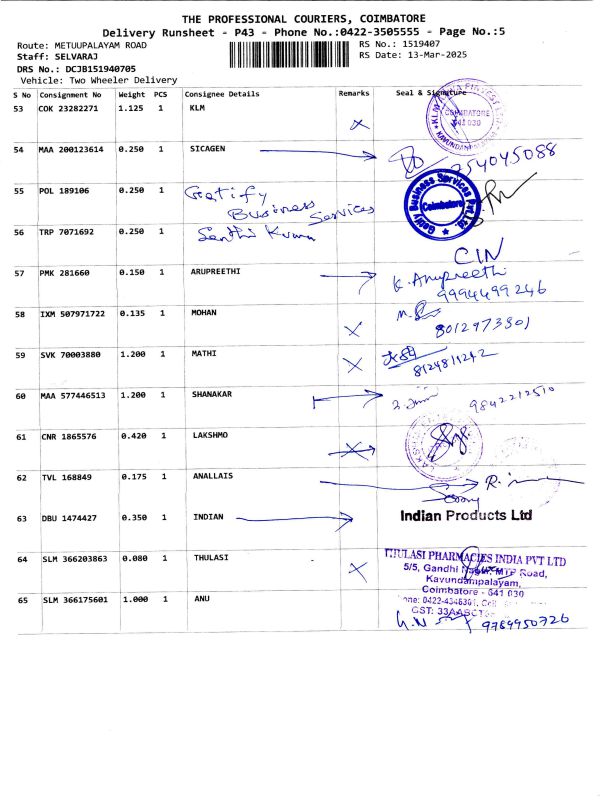 THE PROFESSIONAL COURIERS, COIMBATORE
Delivery Runsheet - P43 - Phone No.:0422-3505555 - Page No.:5
Route: METUUPALAYAM ROAD RS No.: 1519407
Staff: SELVARAJ RS Date: 13-Mar-2025
DRS No.: DCJB151940705
Vehicle: Two Wheeler Delivery
S No Consignment No Weight PCS Consignee Details Remarks Seal & Signature
53 COK 23282271 1.125 1 KLM
COIMBATORE
641 030
KAVUNDAMPALAYAM
54 MAA 200123614 0.250 1 SICAGEN
254045088
55 POL 189106 0.250 1 Getify
Business Services
Getify Business Services Pvt.Ltd.
Coimbatore
56 TRP 7071692 0.250 1 Senthil Kumar
CIN
57 PMK 281660 0.150 1 ARUPREETHI
K. Arupreethi
9994499246
58 IXM 507971722 0.135 1 MOHAN
8012973801
59 SVK 70003880 1.200 1 MATHI
8124811242
60 MAA 577446513 1.200 1 SHANAKAR
9842212510
61 CNR 1865576 0.420 1 LAKSHMO
62 TVL 168849 0.175 1 ANALLAIS
63 DBU 1474427 0.350 1 INDIAN
Indian Products Ltd
64 SLM 366203863 0.080 1 THULASI
THULASI PHARMACIES INDIA PVT LTD
5/5, Gandhi Nagar, MTP Road,
Kavundampalayam,
Coimbatore - 641 030
GST: 33AABCT
65 SLM 366175601 1.000 1 ANU
9789950726